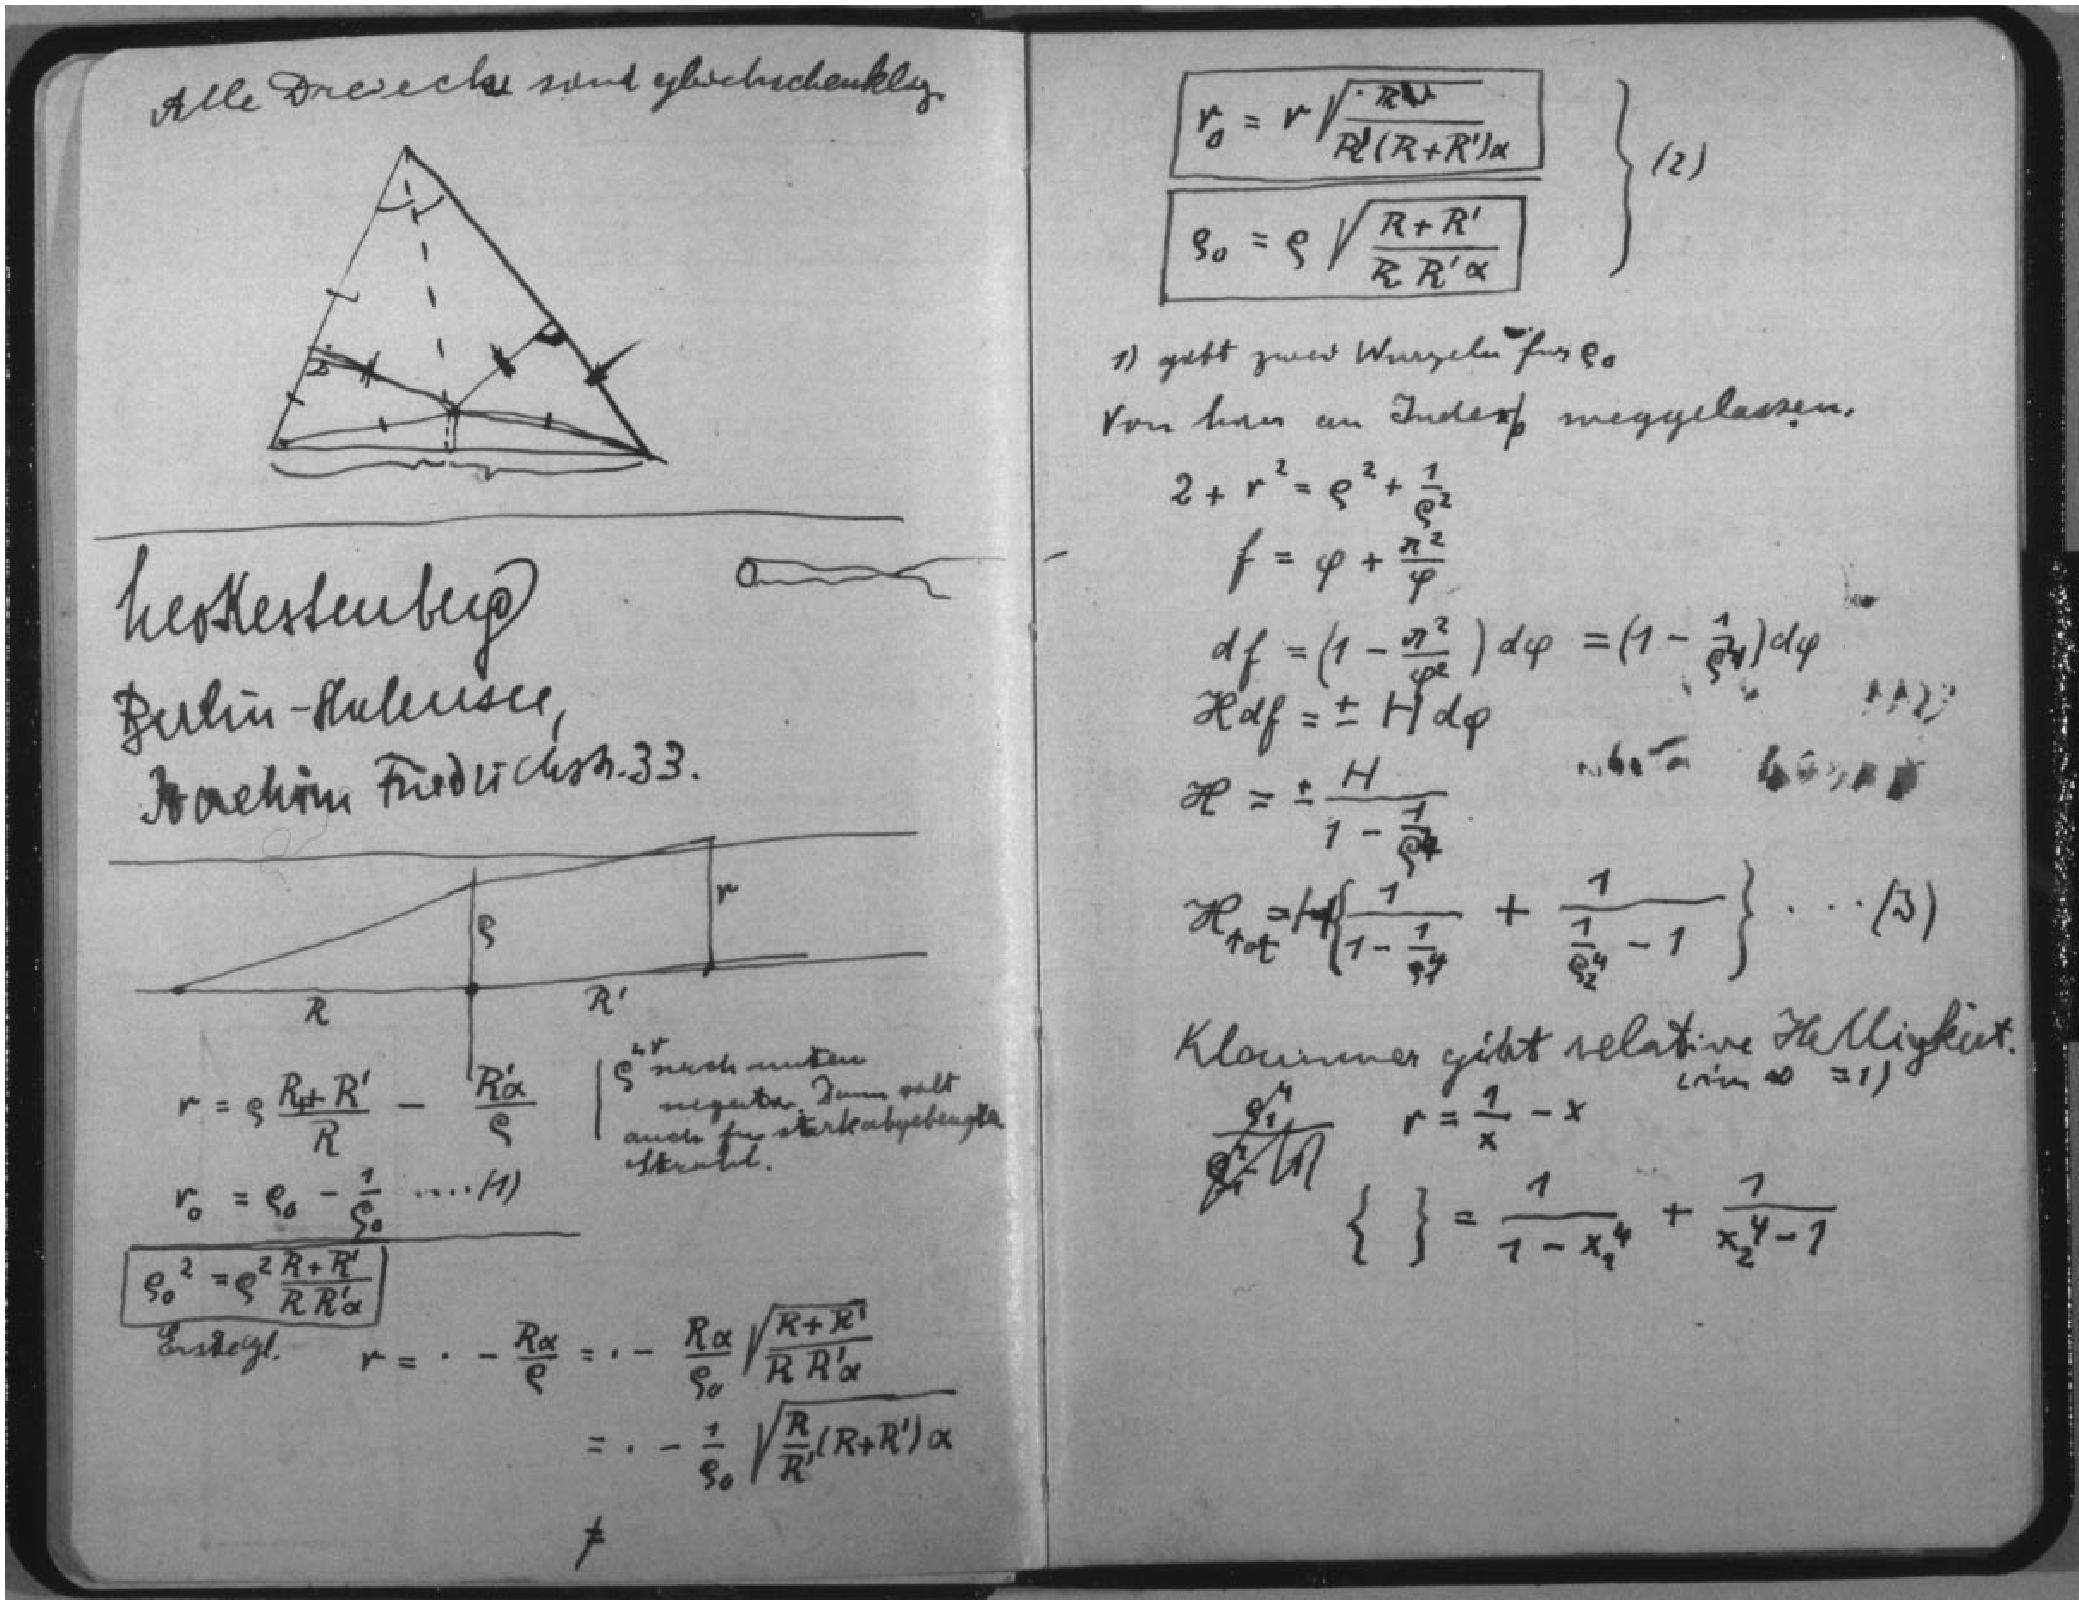 Alle Dreiecke sind gleichschenklig
Leo Kestenberg
Berlin-Halensee,
Joachim Friedrichstr. 33.
ρ
r
R
R'
r = ρ (R+R')/R − R'α/ρ
ρ u r nach unten
negativ. Dann gilt
auch für stark abgebeugten
Strahl.
r₀ = ρ₀ − 1/ρ₀ ....(1)
ρ₀² = ρ² (R+R')/(R R'α)
r = · − Rα/ρ = · − Rα/ρ₀ √((R+R')/(R R'α))
= · − 1/ρ₀ √(R/R' (R+R')α)
r₀ = r √(R/(R'(R+R')α))
ρ₀ = ρ √((R+R')/(R R'α))
} (2)
1) gibt zwei Wurzeln für ρ₀
Von hier an Index weggelassen.
2 + r² = ρ² + 1/ρ²
f = φ + π²/φ
df = (1 − π²/φ²) dφ = (1 − 1/ρ⁴) dφ
ℋ df = ± H dφ
ℋ = ± H/(1 − 1/ρ⁴)
ℋtot = H {1/(1 − 1/ρ₁⁴) + 1/(1/ρ₂⁴ − 1)} · ··· (3)
Klammer gibt relative Helligkeit.
(im ∞ = 1)
r = 1/x − x
{ } = 1/(1 − x₁⁴) + 1/(x₂⁴ − 1)